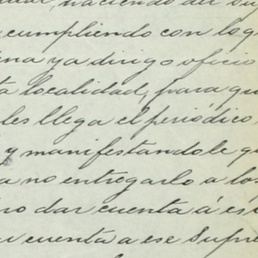 cumpliendo con lo q
ena ya dirigo oficio
a localidad, para qu
les llega el periódico
y manifestandole q
a no entregarlo a los
no dar cuenta á es
cuenta a ese Supre